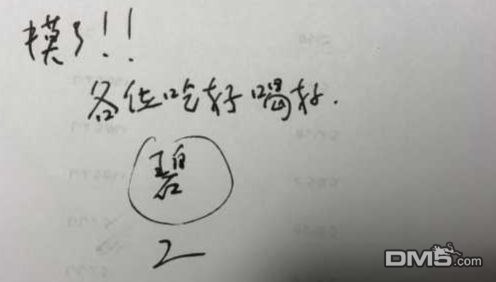 摸了!!
各位吃好喝好.
碧
2
DM5.com